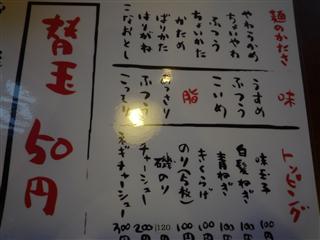 麺のかたさ
やわらかめ
ちょいやわ
ふつう
ちょいかた
かため
ばりかた
はりがね
こなおとし
味
うすめ
ふつう
こいめ
脂
あっさり
ふつう
こってり
トッピング
味玉子 100
白髪ねぎ 100
青ねぎ 100
きくらげ 100
のり(5枚) 100
磯のり 120
チャーシュー 200円
ネギチャーシュー 300円
替玉 50円